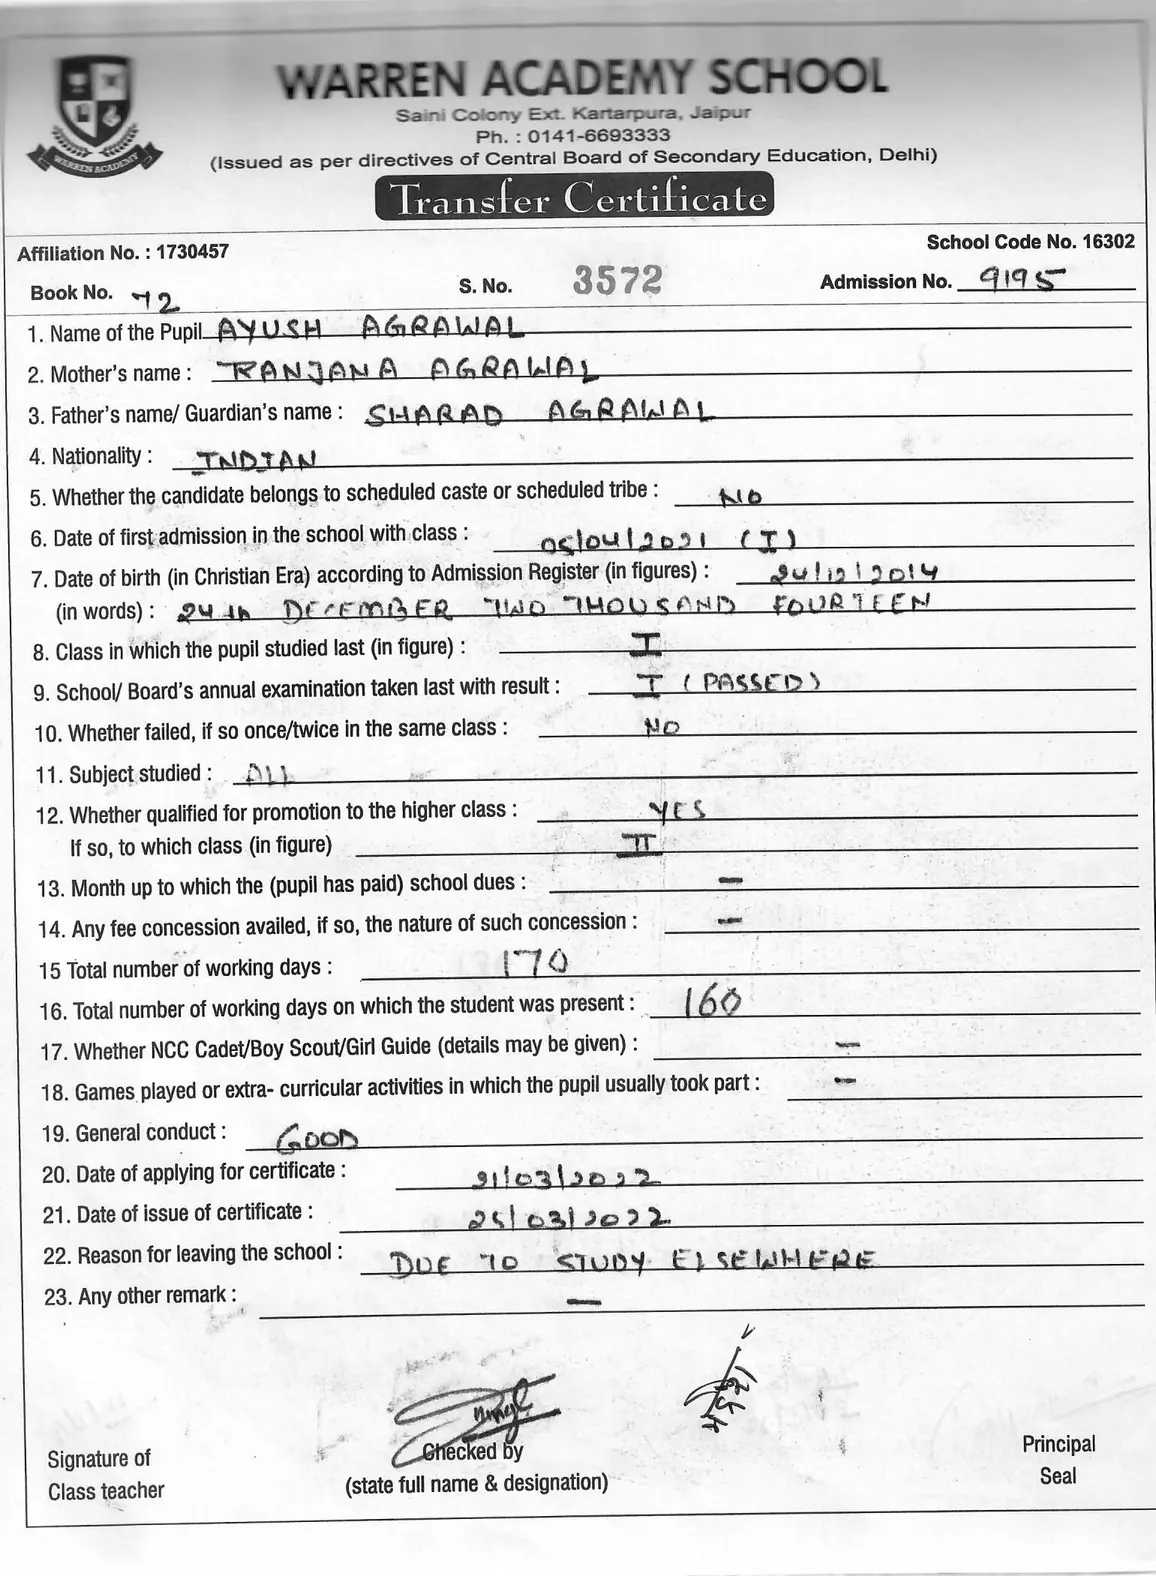 WARREN ACADEMY SCHOOL
Saini Colony Ext. Kartarpura, Jaipur
Ph. : 0141-6693333
(Issued as per directives of Central Board of Secondary Education, Delhi)
WARREN ACADEMY
Transfer Certificate
Affiliation No. : 1730457 School Code No. 16302
Book No. 72 S. No. 3572 Admission No. 9195
1. Name of the Pupil AYUSH AGRAWAL
2. Mother's name : RANJANA AGRAWAL
3. Father's name/ Guardian's name : SHARAD AGRAWAL
4. Nationality : INDIAN
5. Whether the candidate belongs to scheduled caste or scheduled tribe : NO
6. Date of first admission in the school with class : 05/04/2021 (I)
7. Date of birth (in Christian Era) according to Admission Register (in figures) : 24/12/2014
(in words) : 24th DECEMBER TWO THOUSAND FOURTEEN
8. Class in which the pupil studied last (in figure) : I
9. School/ Board's annual examination taken last with result : I (PASSED)
10. Whether failed, if so once/twice in the same class : NO
11. Subject studied : ALL
12. Whether qualified for promotion to the higher class : YES
If so, to which class (in figure) II
13. Month up to which the (pupil has paid) school dues : —
14. Any fee concession availed, if so, the nature of such concession : —
15 Total number of working days : 170
16. Total number of working days on which the student was present : 160
17. Whether NCC Cadet/Boy Scout/Girl Guide (details may be given) : —
18. Games played or extra- curricular activities in which the pupil usually took part : —
19. General conduct : GOOD
20. Date of applying for certificate : 21/03/2022
21. Date of issue of certificate : 25/03/2022
22. Reason for leaving the school : DUE TO STUDY ELSEWHERE
23. Any other remark : —
Signature of Checked by Principal
Class teacher (state full name & designation) Seal